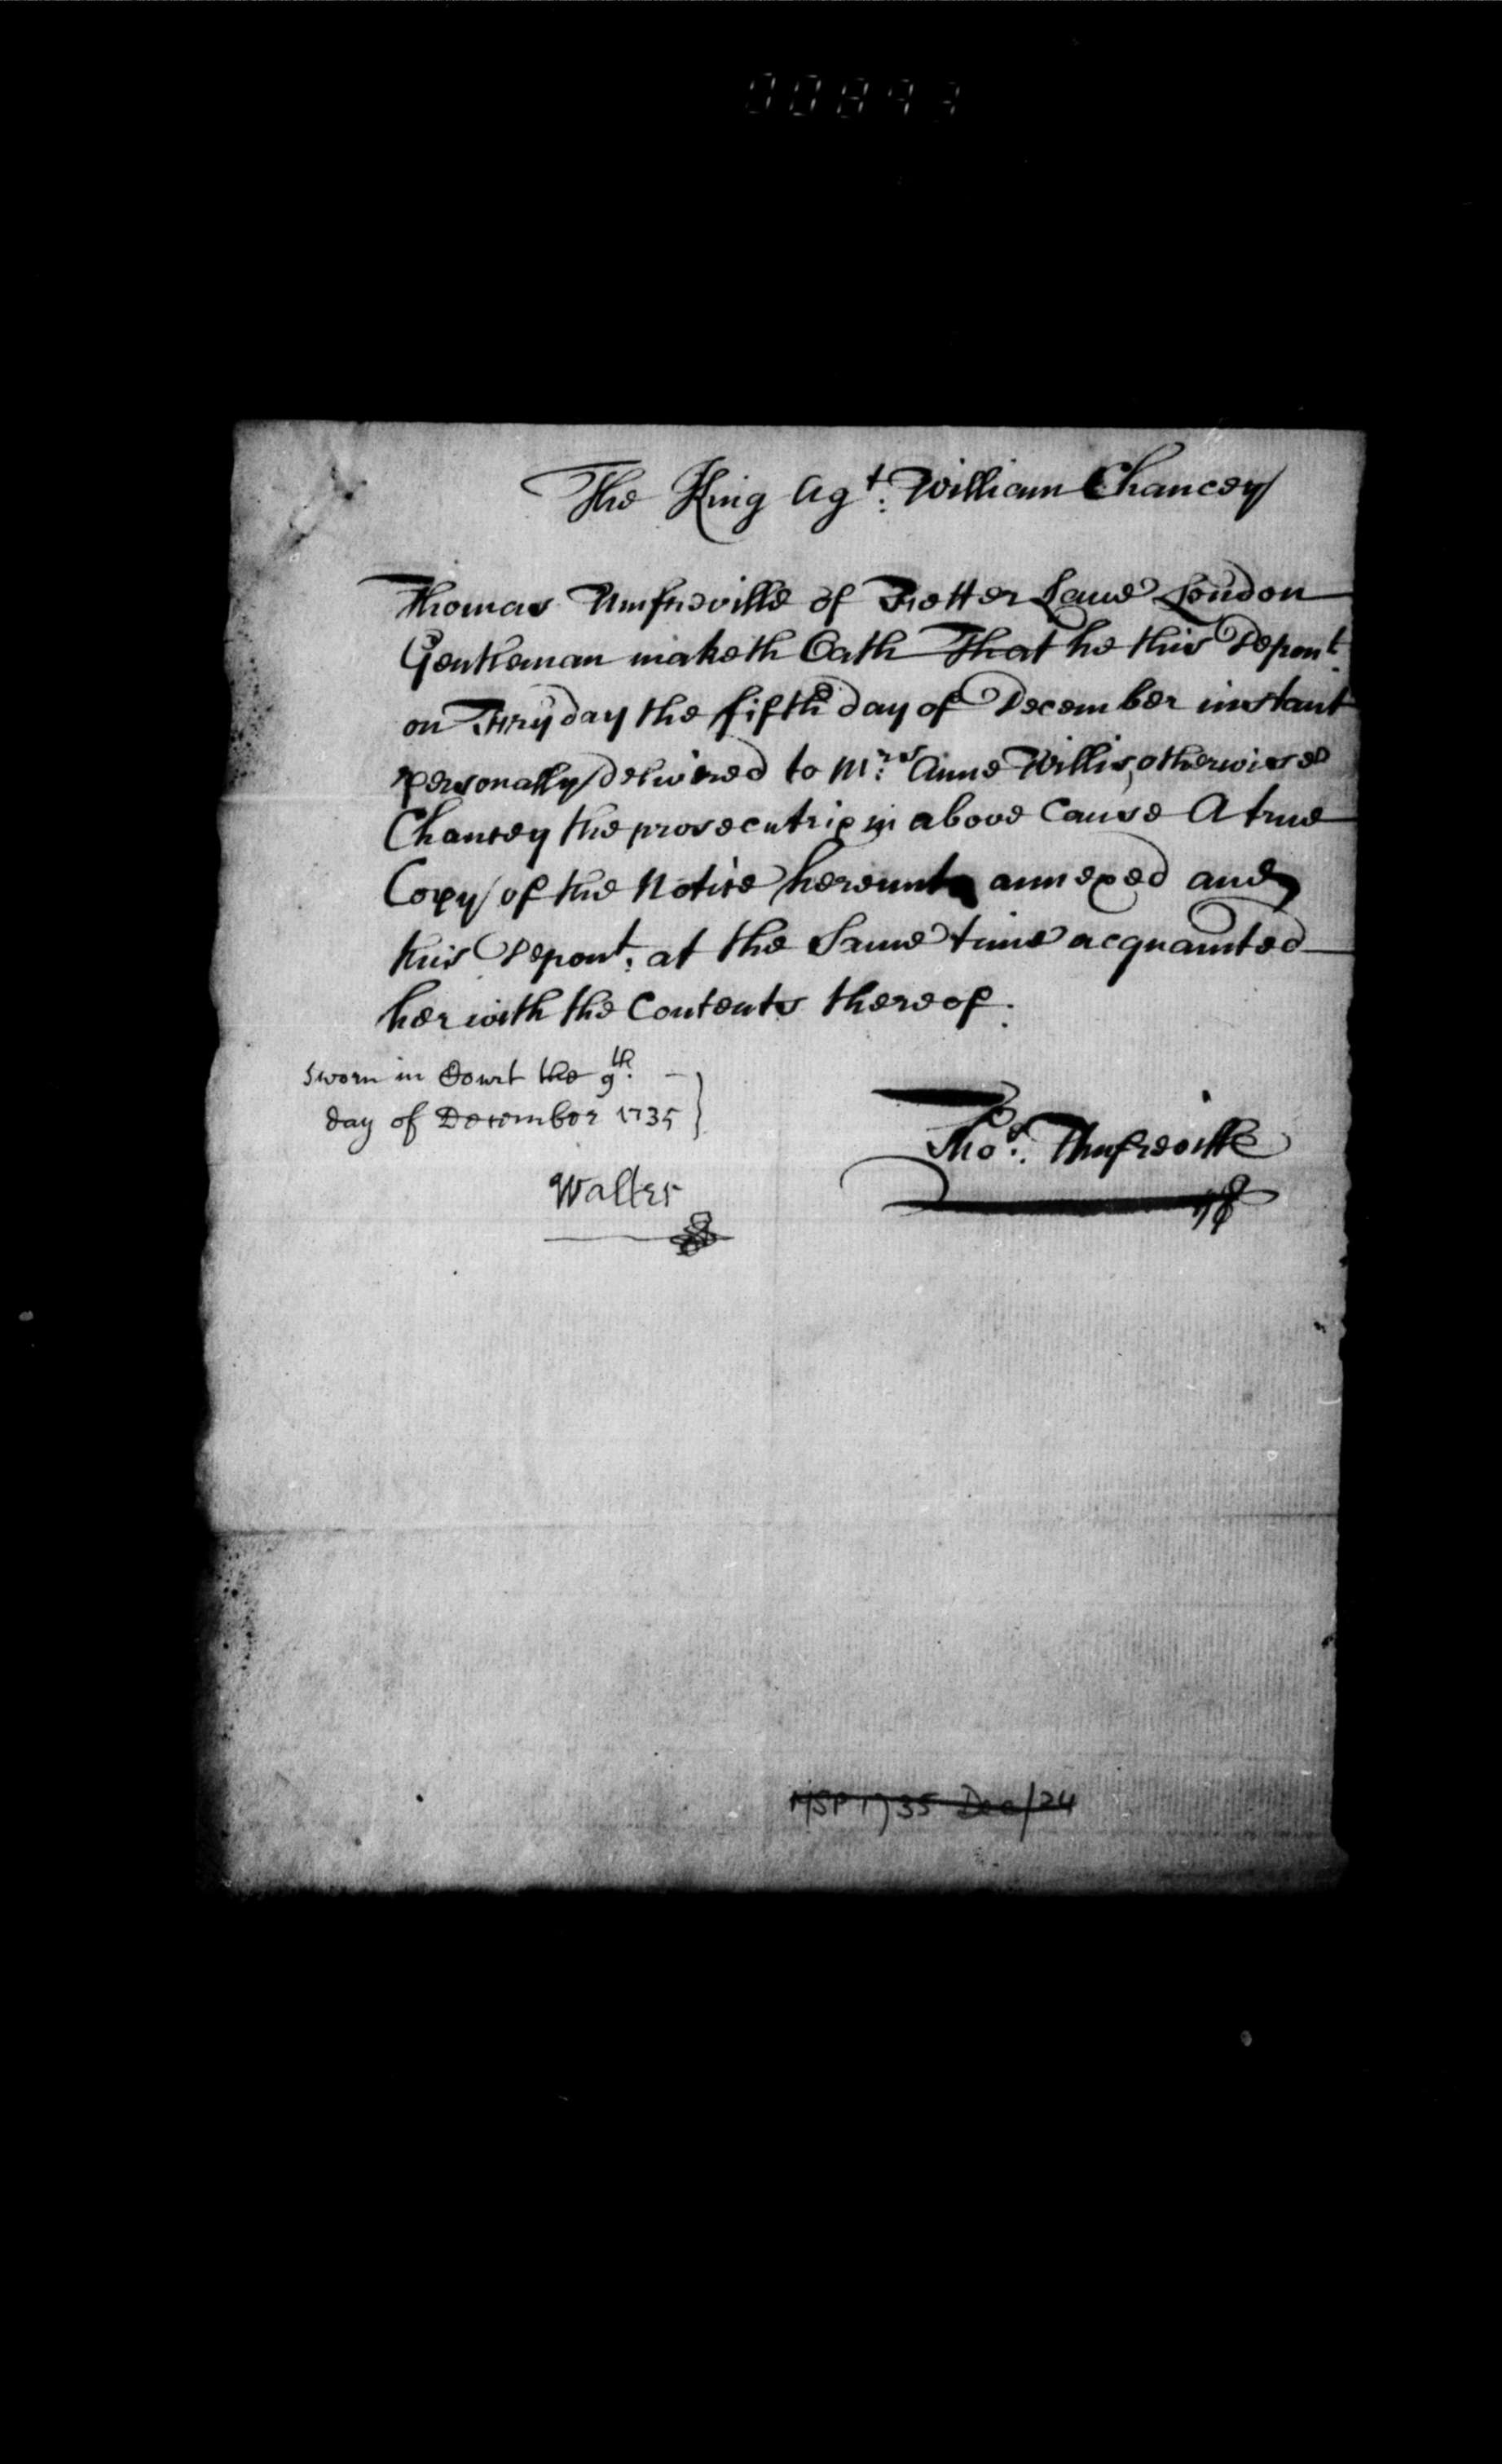 The King Agt. William Chancey
Thomas Umfreville of Fetter Lane London
Gentleman maketh Oath That he this Depont.
on Fryday the fifth day of December instant
personally delivered to Mrs. Anne Willis, otherwise
Chancey the prosecutrix in above Cause A true
Copy of the Notice hereunto annexed and
this Depont. at the Same time acquainted
her with the Contents thereof.
Sworn in Court the 9th.
day of December 1735
Thos. Umfreville
Walter
MSP 1735 Dec/24